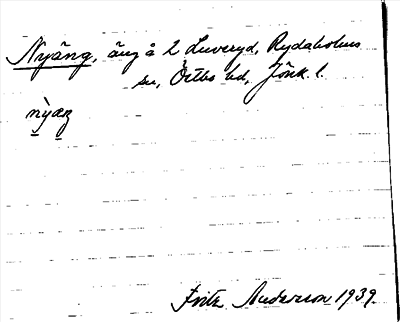 Nyäng, äng å 2 Luveryd, Rydaholms
sn, Östbo hd, Jönk. l.
nỳæŋ
Fritz Anderson 1939.